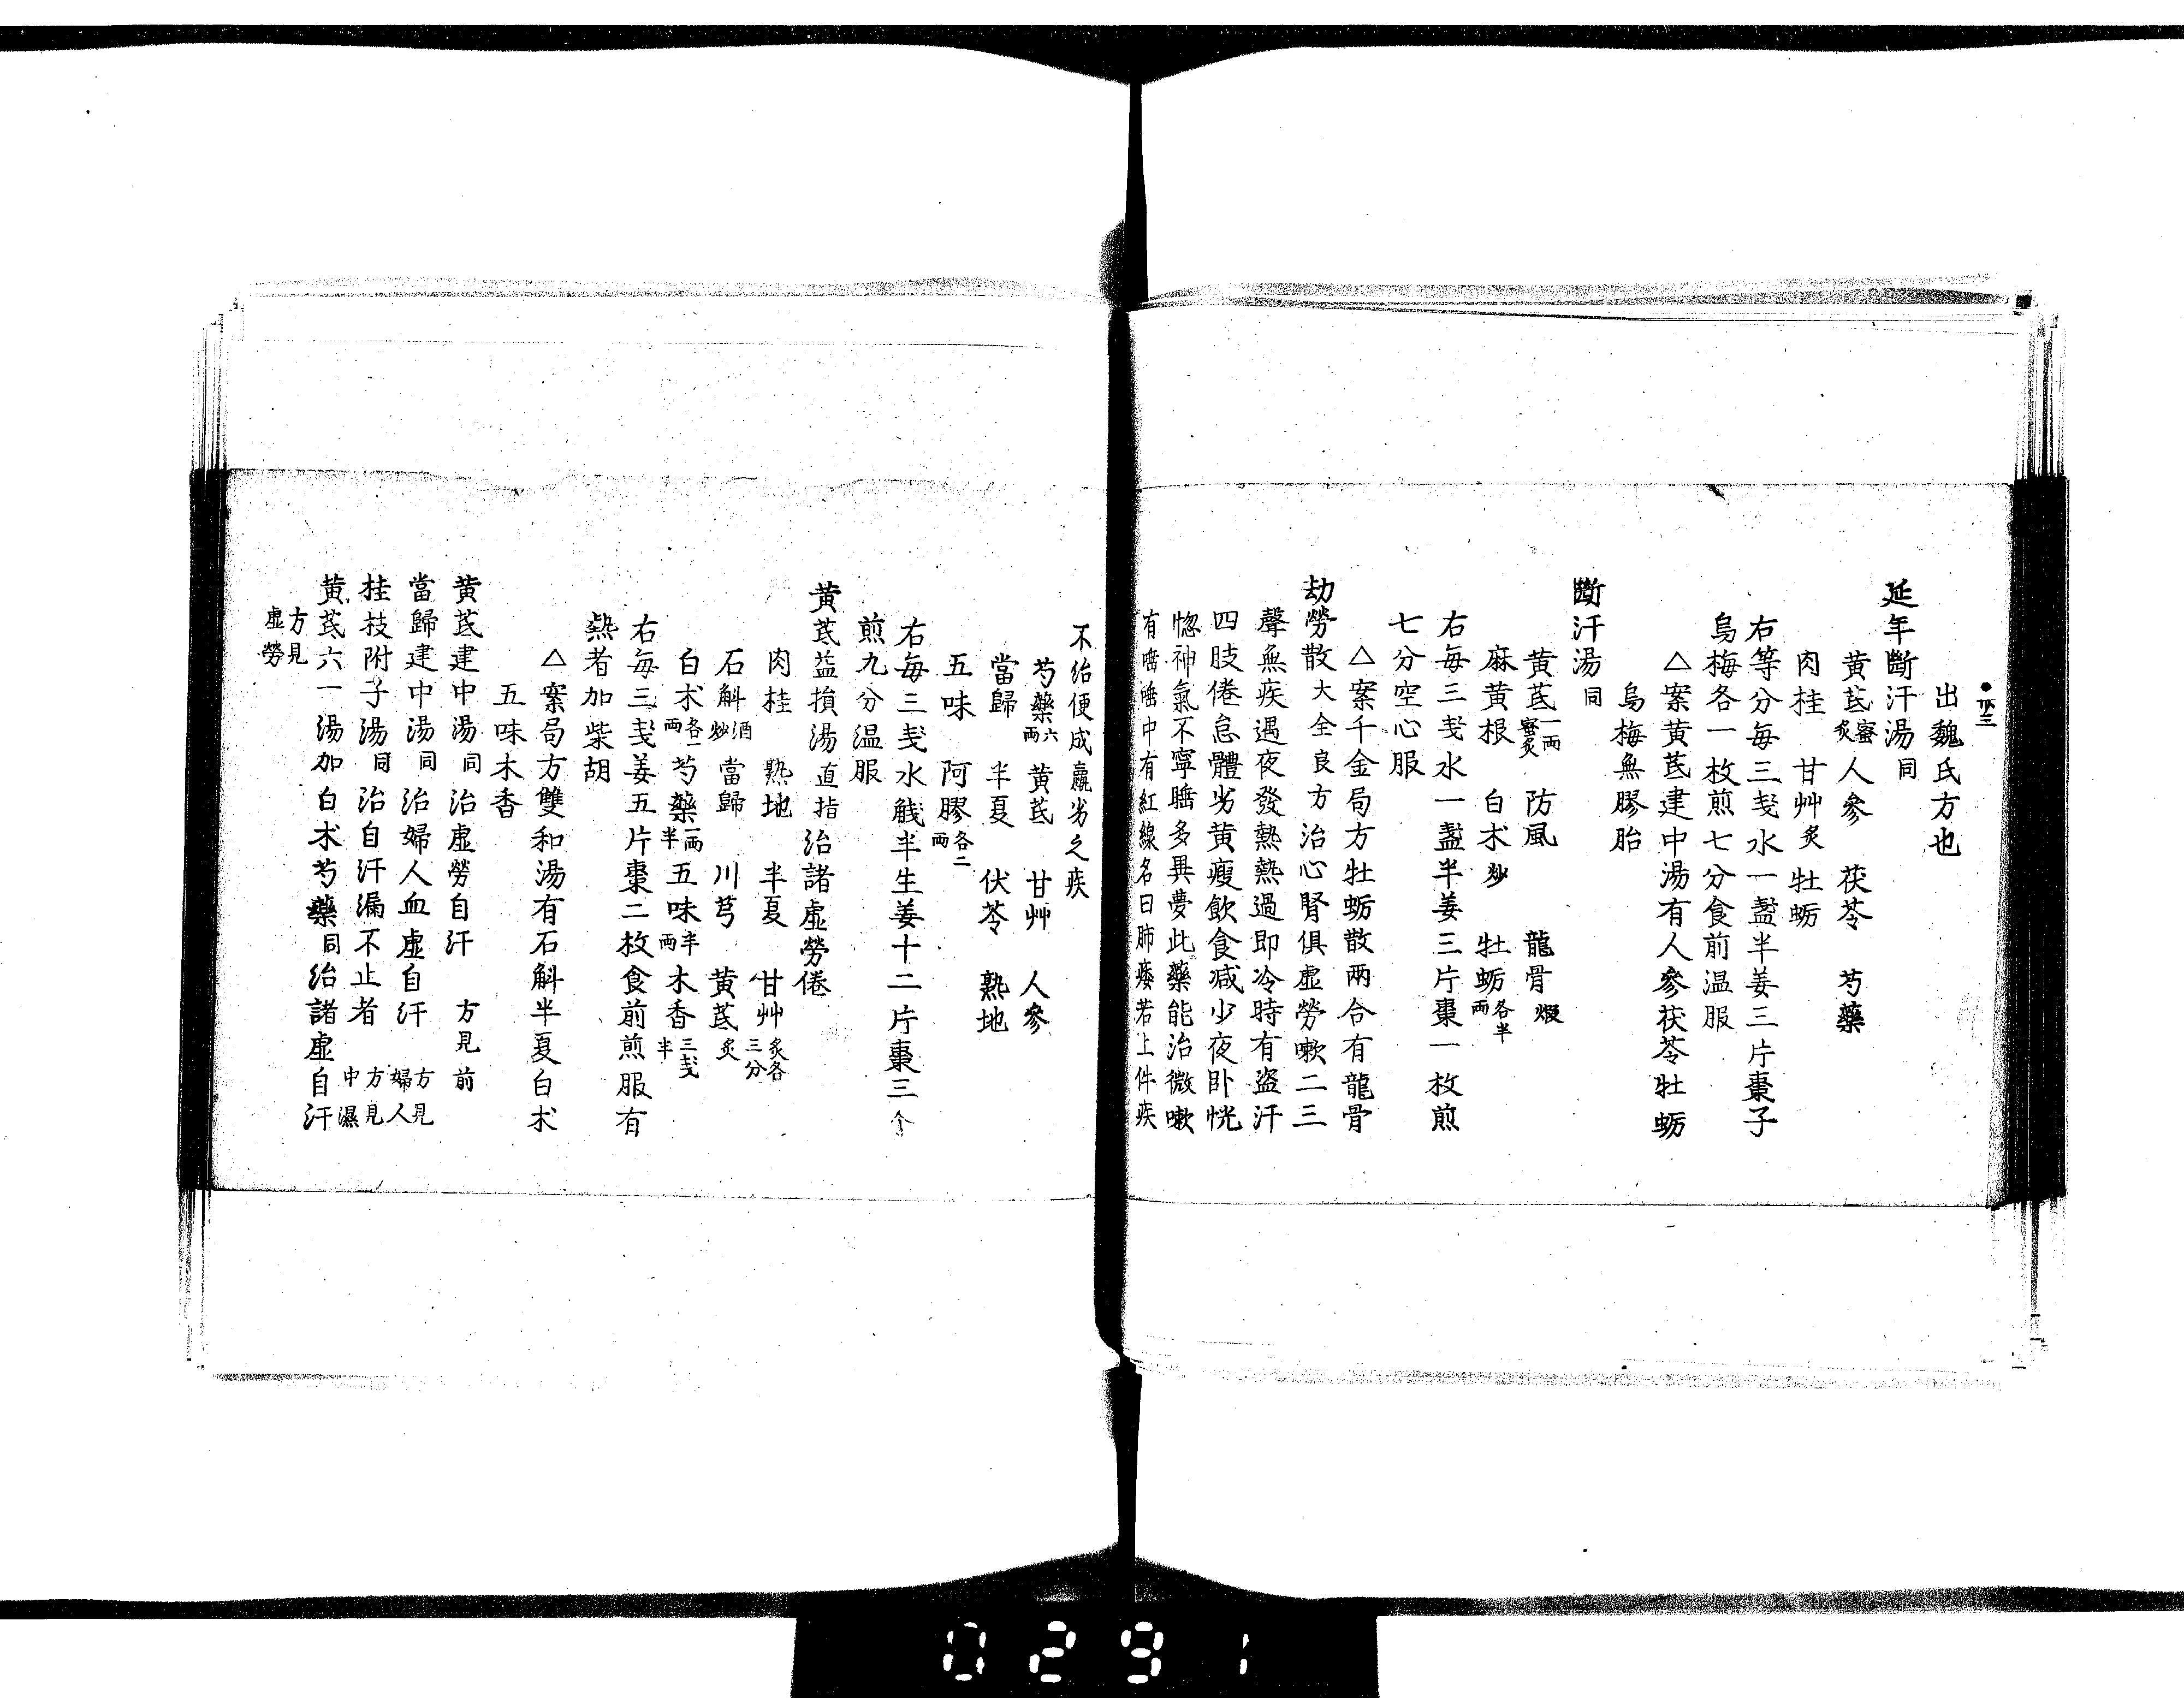 出魏氏方也
延年斷汗湯同
黄芪蜜炙人參 茯苓 芍藥
肉桂 甘艸炙 牡蛎
右等分毎三戔水一盞半姜三片棗子
烏梅各一枚煎七分食前温服
△案黄芪建中湯有人參茯苓牡蛎
烏梅無膠胎
斷汗湯同
黄芪一両蜜炙 防風 龍骨煆
麻黄根 白朮炒 牡蛎各半両
右毎三戔水一盞半姜三片棗一枚煎
七分空心服
△案千金局方牡蛎散兩合有龍骨
劫勞散大全良方治心腎俱虛勞嗽二三
聲無疾遇夜發熱熱過即冷時有盗汗
四肢倦怠體劣黄瘦飲食减少夜卧恍
惚神氣不寧睡多異夢此藥能治微嗽
有唾唾中有紅線名曰肺痿若上件疾
不治便成羸劣之疾
芍藥六両 黄芪 甘艸 人參
當歸 半夏 伏苓 熟地
五味 阿膠各二両
右毎三戔水醆半生姜十二片棗三个
煎九分温服
黄芪益損湯直指治諸虛勞倦
肉桂 熟地 半夏 甘艸炙各三分
石斛酒炒 當歸 川芎 黄芪炙
白朮各一両 芍藥一両半 五味半両 木香三戔半
右毎三戔姜五片棗二枚食前煎服有
熱者加柴胡
△案局方雙和湯有石斛半夏白朮
五味木香
黄芪建中湯同治虛勞自汗 方見前
當歸建中湯同治婦人血虛自汗 方見婦人
桂枝附子湯同治自汗漏不止者 方見中濕
黄芪六一湯加白朮芍藥同治諸虛自汗
方見虛勞
0291